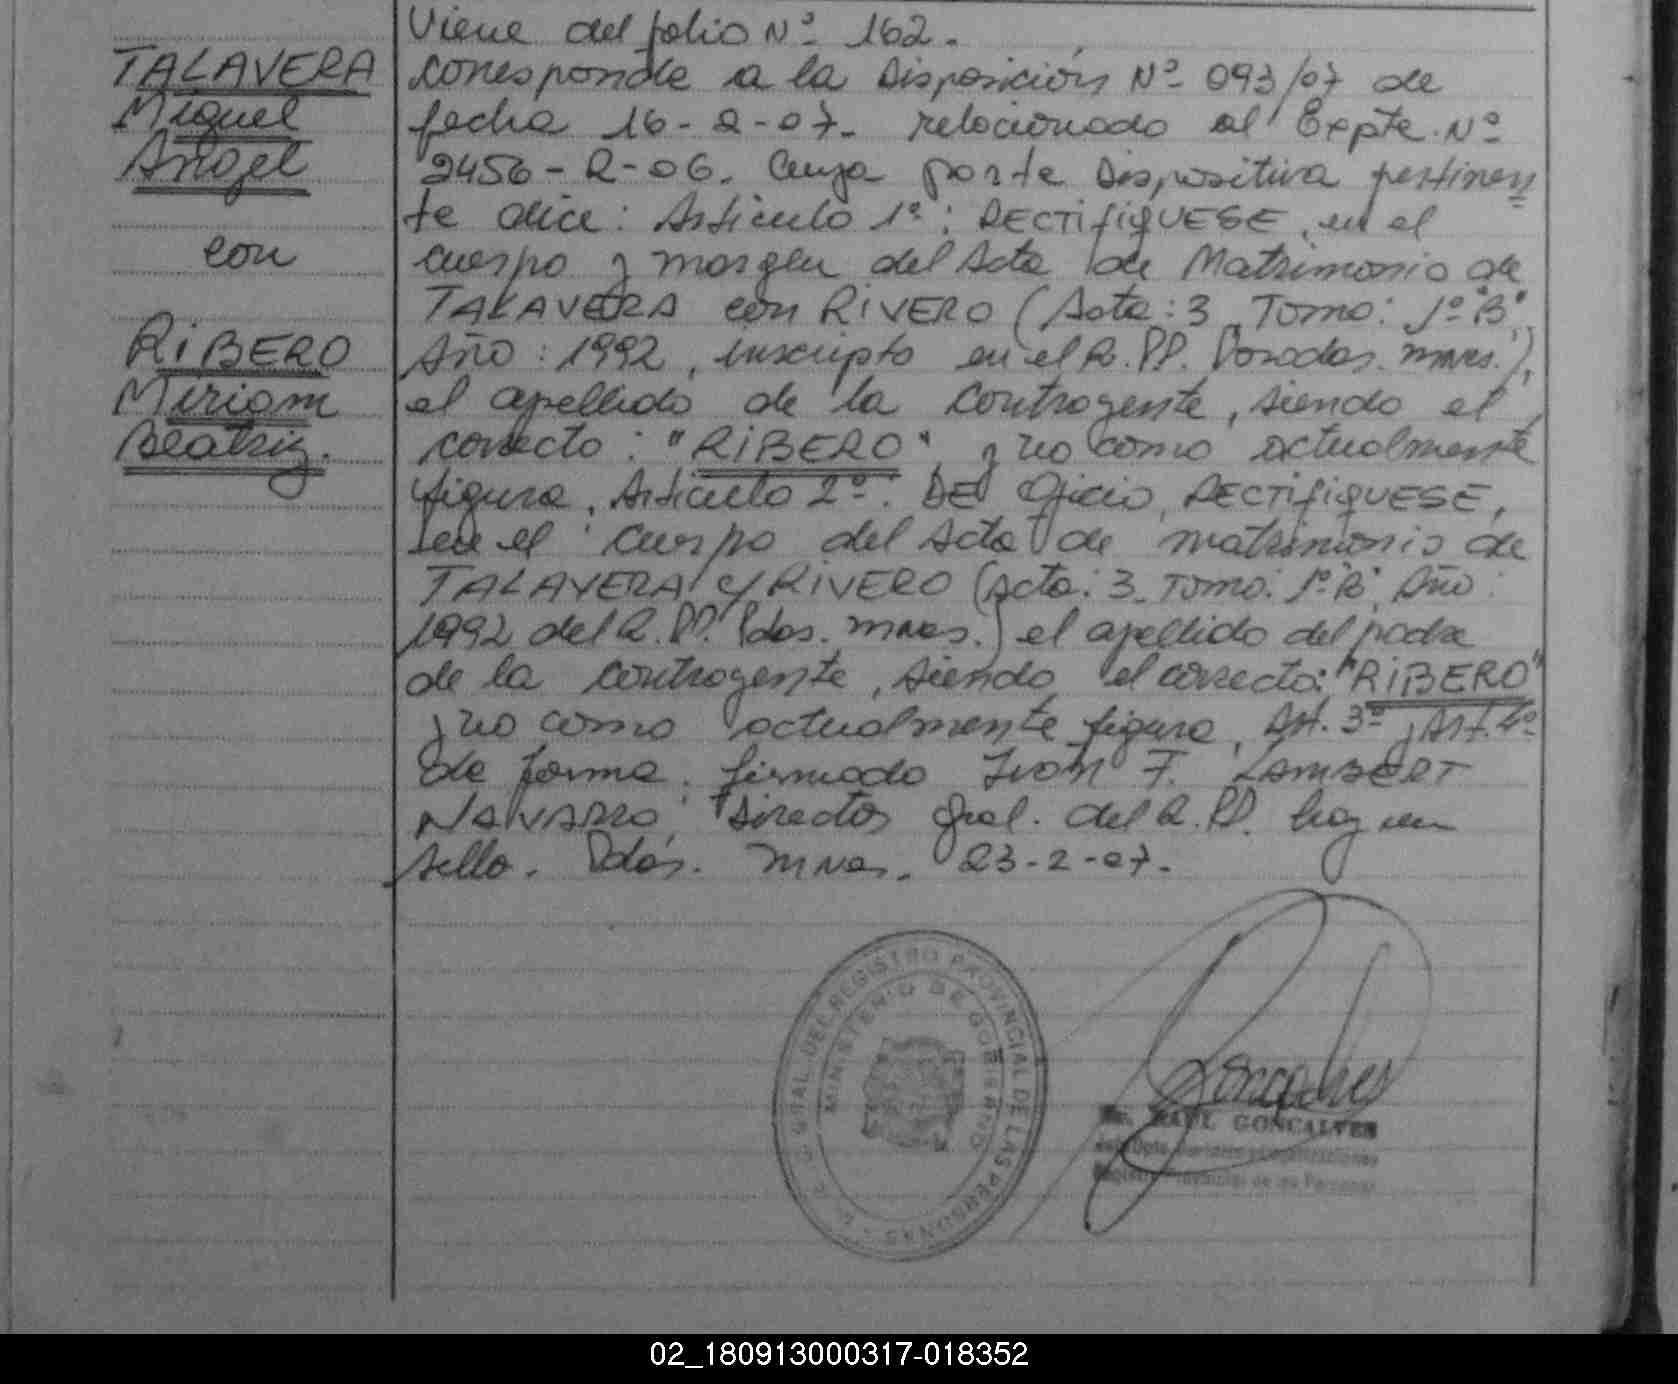 Viene del folio Nº 162.
TALAVERA
Miguel
Angel
con
RIBERO
Miriam
Beatriz.
corresponde a la Disposición Nº 093/07 de
fecha 16-2-07. relacionado al Expte. Nº
2456-R-06. Cuya parte Dispositiva pertinen
te dice: Articulo 1º: RECTIFIQUESE, en el
cuerpo y margen del Acta de Matrimonio de
TALAVERA con RIVERO (Acta: 3, Tomo: 1º"B",
Año: 1992, inscripto en el R.PP. Posadas. mnes.),
el apellido de la contrayente, siendo el
correcto: "RIBERO" y no como actualmente
figura, Articulo 2º: DE Oficio, RECTIFIQUESE,
en el cuerpo del Acta de matrimonio de
TALAVERA c/ RIVERO (Acta: 3. Tomo: 1º"B", Año:
1992 del R.PP. Pdas. mnes.) el apellido del padre
de la contrayente, siendo el correcto: "RIBERO"
y no como actualmente figura, Art. 3º y Art. 4º
de forma. firmado Ivan F. LAMBERT
NAVARRO, Director Gral. del R.PP. hay un
sello. Pdas. mnes. 23-2-07.
GRAL. DEL REGISTRO PROVINCIAL DE LAS PERSONAS
MINISTERIO DE GOBIERNO
RAUL GONCALVES
Registro Provincial de las Personas
02_180913000317-018352